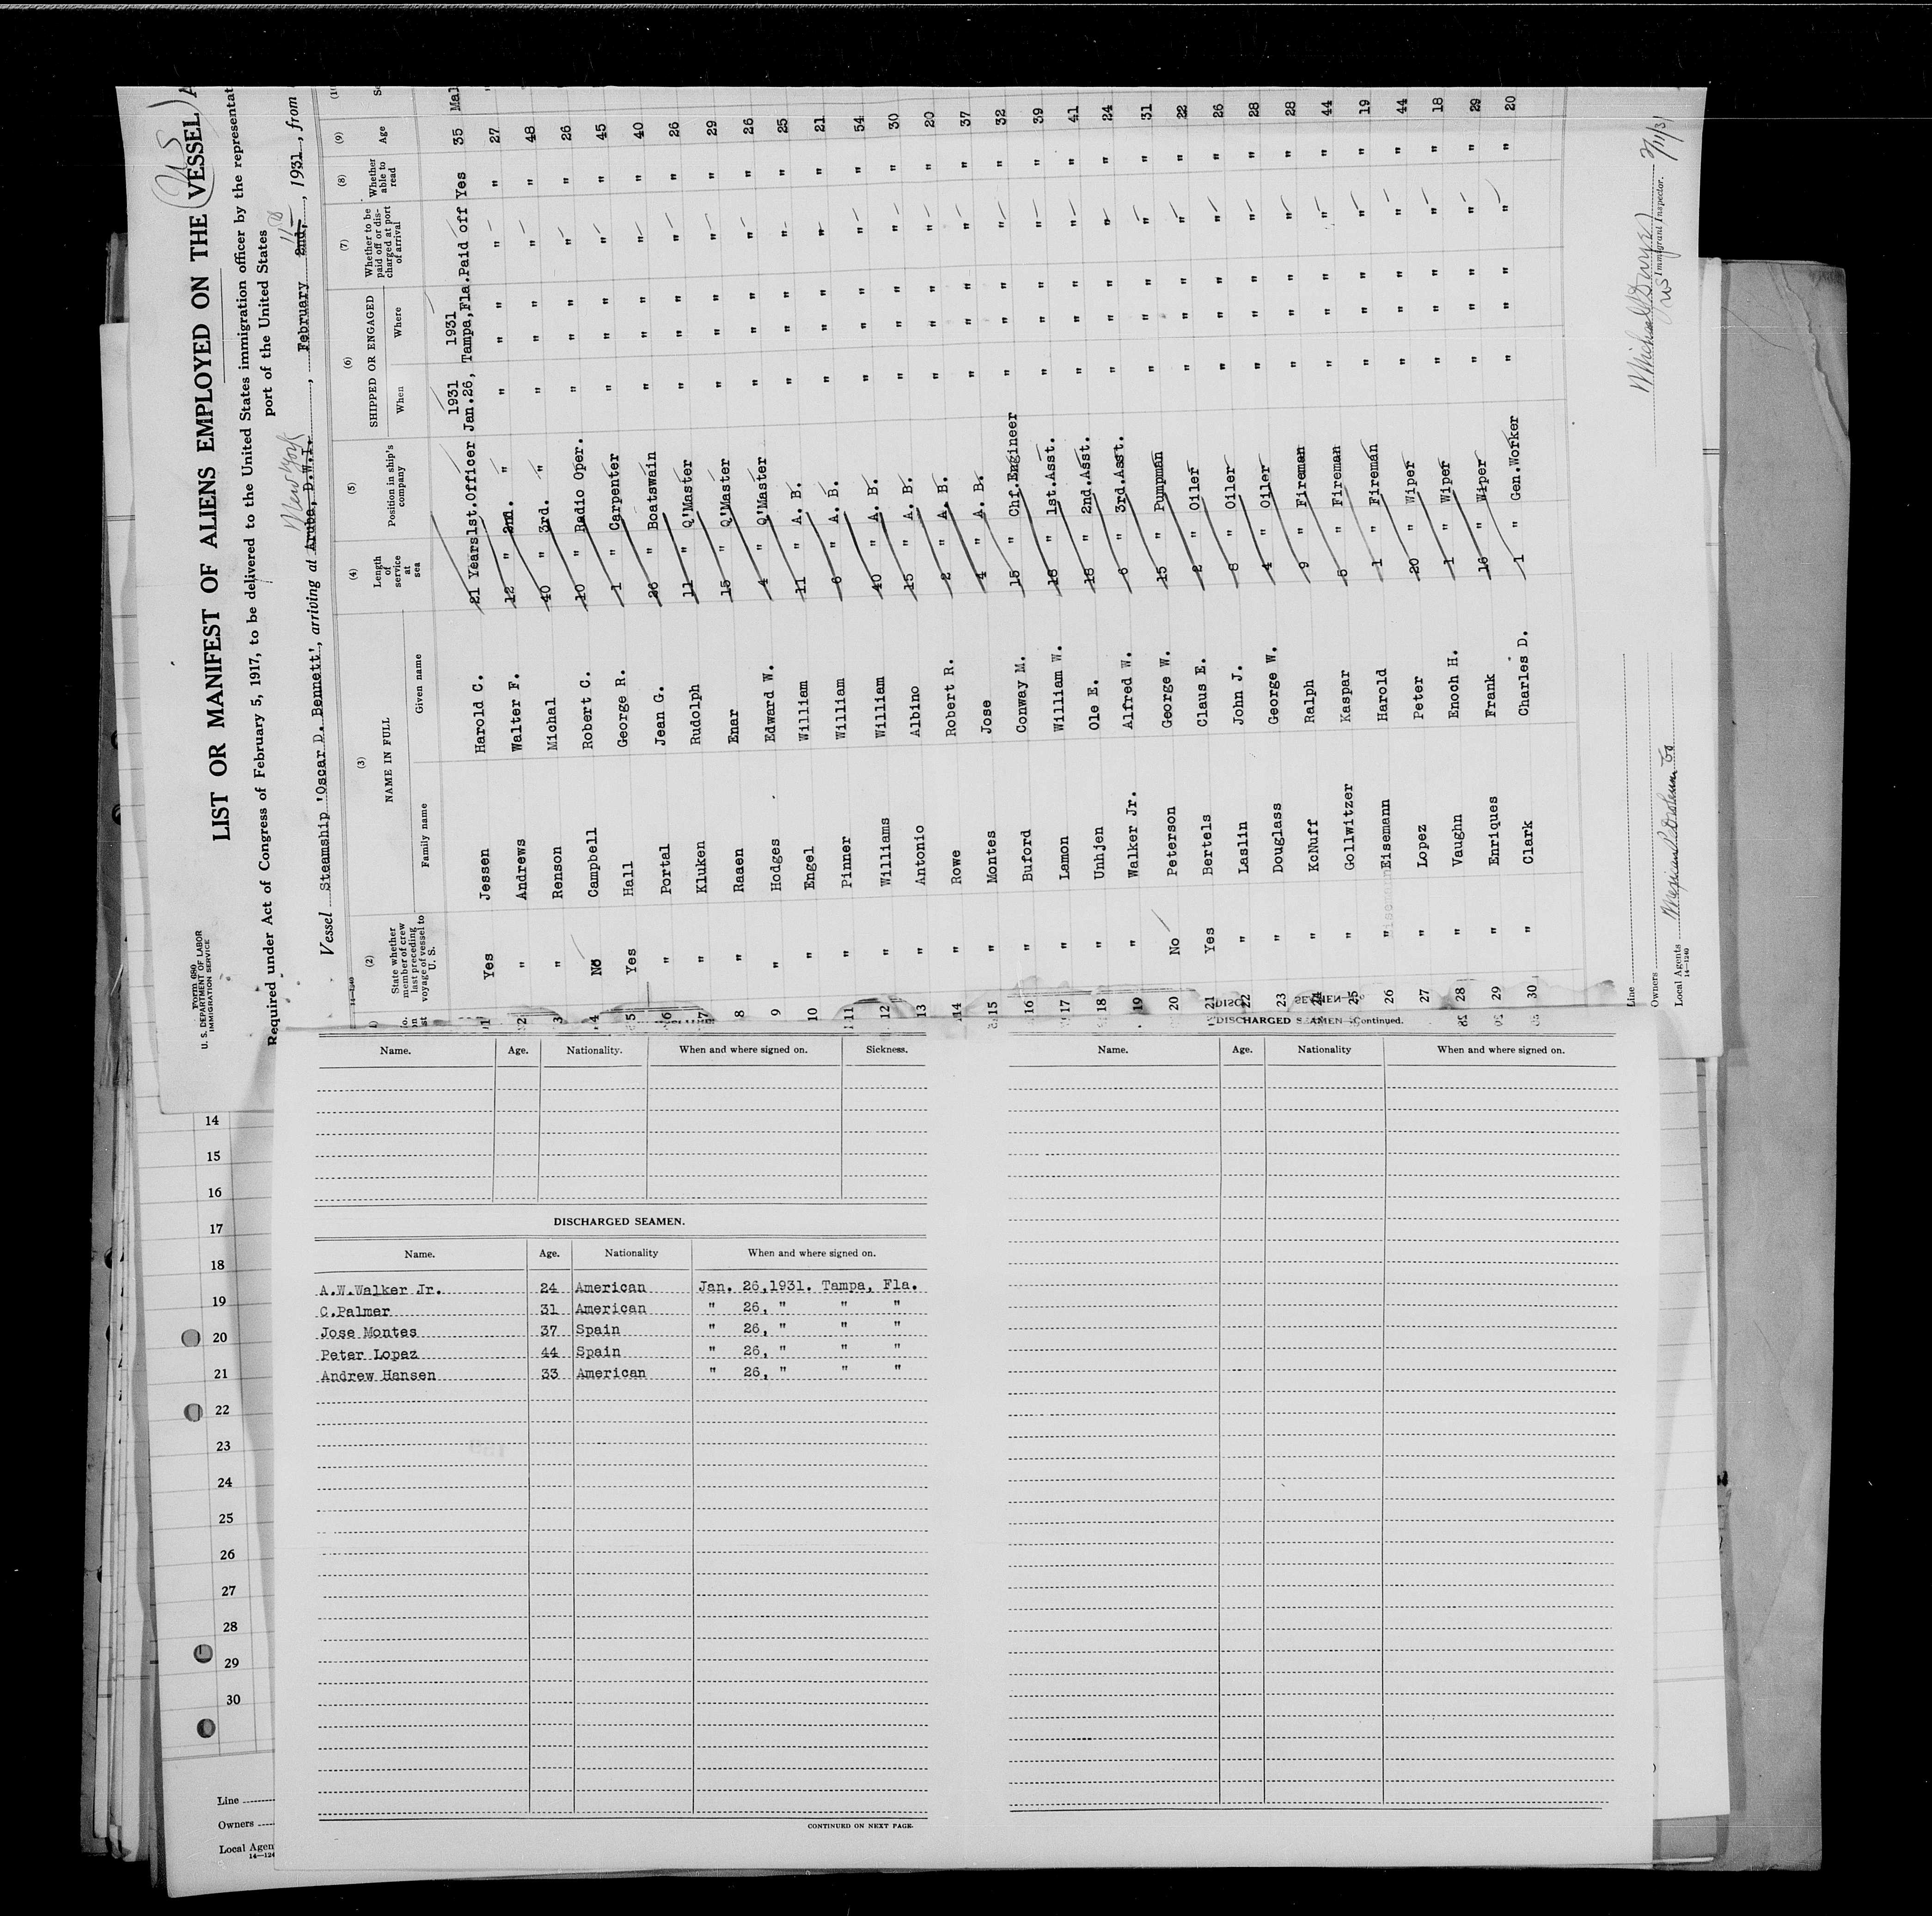 Form 680
U. S. DEPARTMENT OF LABOR
IMMIGRATION SERVICE
LIST OR MANIFEST OF ALIENS EMPLOYED ON THE VESSEL
US
Required under Act of Congress of February 5, 1917, to be delivered to the United States immigration officer by the representat
port of the United States
New York 11th
Vessel Steamship 'Oscar D. Bennett', arriving at Aruba, D.W.I., February 2nd, 1931, from
14-1240
(2) (3) (4) (5) (6) (7) (8) (9)
State whether member of crew last preceding voyage of vessel to U. S. NAME IN FULL Family name Given name Length of service at sea Position in ship's company SHIPPED OR ENGAGED When Where Whether to be paid off or discharged at port of arrival Whether able to read Age
1 Yes Jessen Harold C. 21 Years 1st.Officer 1931 Jan.26, 1931 Tampa,Fla. Paid off Yes 35 Mal
2 " Andrews Walter F. 12 " 2nd. " " " " " " 27
3 " Renson Michal 40 " 3rd. " " " " " " 48
4 No Campbell Robert C. 10 " Radio Oper. " " " " " 26
5 Yes Hall George R. 1 " Carpenter " " " " " 45
6 " Portal Jean G. 26 " Boatswain " " " " " 40
7 " Kluken Rudolph 11 " Q'Master " " " " " 26
8 " Raaen Enar 15 " Q'Master " " " " " 29
9 " Hodges Edward W. 4 " Q'Master " " " " " 26
10 " Engel William 11 " A. B. " " " " " 25
11 " Pinner William 6 " A. B. " " " " " 21
12 " Williams William 40 " A. B. " " " " " 54
13 " Antonio Albino 15 " A. B. " " " " " 30
14 " Rowe Robert R. 2 " A. B. " " " " " 20
15 " Montes Jose 4 " A. B. " " " " " 37
16 " Buford Conway M. 15 " Chf.Engineer " " " " " 32
17 " Lamon William W. 18 " 1st.Asst. " " " " " 39
18 " Unhjen Ole E. 18 " 2nd.Asst. " " " " " 41
19 " Walker Jr. Alfred W. 6 " 3rd.Asst. " " " " " 24
20 No Peterson George W. 15 " Pumpman " " " " " 31
21 Yes Bertels Claus E. 2 " Oiler " " " " " 22
22 " Laslin John J. 8 " Oiler " " " " " 26
23 " Douglass George W. 4 " Oiler " " " " " 28
24 " KcNuff Ralph 9 " Fireman " " " " " 28
25 " Gollwitzer Kaspar 5 " Fireman " " " " " 44
26 " Eisemann Harold 1 " Fireman " " " " " 19
27 " Lopez Peter 20 " Wiper " " " " " 44
28 " Vaughn Enoch H. 1 " Wiper " " " " " 18
29 " Enriques Frank 16 " Wiper " " " " " 29
30 " Clark Charles D. 1 " Gen.Worker " " " " " 20
Line
Owners
Local Agents Mexican Petroleum Co
14-1240
Immigrant Inspector.
2/11/31
DISCHARGED SEAMEN—Continued.
Name. Age. Nationality. When and where signed on. Sickness.
Name. Age. Nationality When and where signed on.
DISCHARGED SEAMEN.
Name. Age. Nationality When and where signed on.
A.W.Walker Jr. 24 American Jan. 26,1931. Tampa, Fla.
C.Palmer 31 American " 26, " " "
Jose Montes 37 Spain " 26, " " "
Peter Lopez 44 Spain " 26, " " "
Andrew Hansen 33 American " 26, " " "
CONTINUED ON NEXT PAGE.
14
15
16
17
18
19
20
21
22
23
24
25
26
27
28
29
30
Line
Owners
Local Agen
14-124